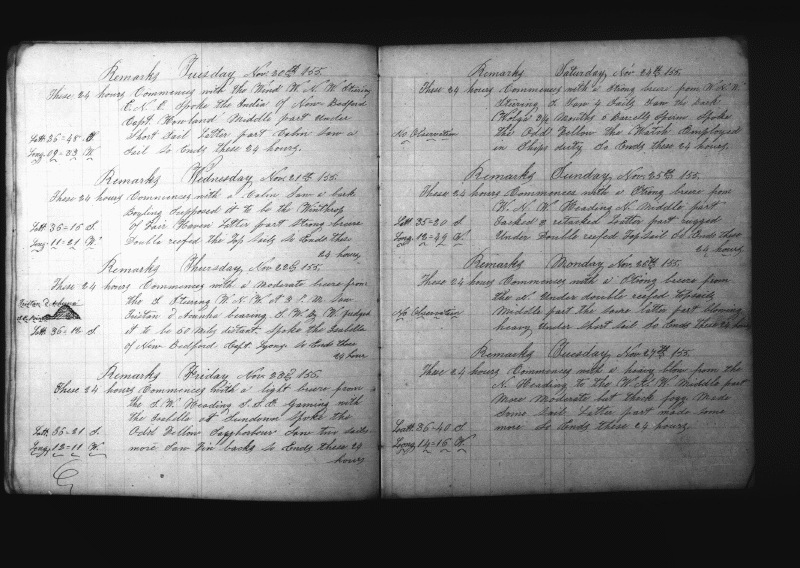 Remarks Tuesday Nov. 20th 155.
These 24 hours Commences with the Wind W. N. W. Stering
E. N. E. Spoke the India of New Bedford
Capt. Howland Middle part Under
Latt 36-48 S. Short Sail Latter part Calm Saw a
Long. 09-33 W. Sail So Ends These 24 hours.
Remarks Wednesday Nov. 21th 155.
These 24 hours Commences with a Calm Saw a bark
Boyling Supposed it to be the Winthrop
Latt 36-16 S. of Fair Haven Latter part Strong breese
Long. 11-21 W. Double reefed the Top Sails So Ends These
24 hours
Remarks Thursday Nov. 22d 155.
These 24 hours Commences with a Moderate breese from
the S Stering W. N. W. At 3 P. M. Saw
Tristan D Acunha bearing S. W. By W. Judged
Latt. 36-12 S. it to be 60 Miles distant. Spoke the Isabella
of New Bedford Capt Lyons. So Ends These
24 hour
Remarks Friday Nov. 23d 155.
These 24 hours Commences with a light breese from
the S. W. Heading S. S. E. Gaming with
the Isabella at Sundown Spoke the
Latt. 36-21 S. Odd Fellow Sagharbour Saw two sails
Long. 12-11 W. more Saw Fin backs So Ends these 24
hours
Remarks Saturday, Nov 24th 155.
These 24 hours Commences with a Strong breese from W. N. W.
Stering S Saw 4 Sails Saw the bark
24 Months Barells Sperm Spoke
No Observation The Odd Fellow the Watch Employed
in Ships duty So Ends These 24 hours.
Remarks Sunday, Nov 25th 155.
These 24 hours Commences with a Strong breese from
W. N. W. Heading N. Middle part
Latt 35-20 S. Tacked & retacked Latter part rugged
Long. 12-49 W. Under Double reefed Top Sail So Ends These
24 hours
Remarks Monday Nov 26th 155.
These 24 hours Commences with a Strong breese from
the N. Under double reefed topsails
No Observation Middle part the Same latter part blowing
heavy, Under Short Sail So Ends These 24 hours
Remarks Tuesday, Nov 27th 155.
These 24 hours Commences with a heavy blow from the
N. Heading to The W. N. W. Middle part
More Moderate but thick fogg Made
Some Sail Latter part made some
Latt 36-40 S. more So Ends These 24 hours,
Long. 14-16 W.